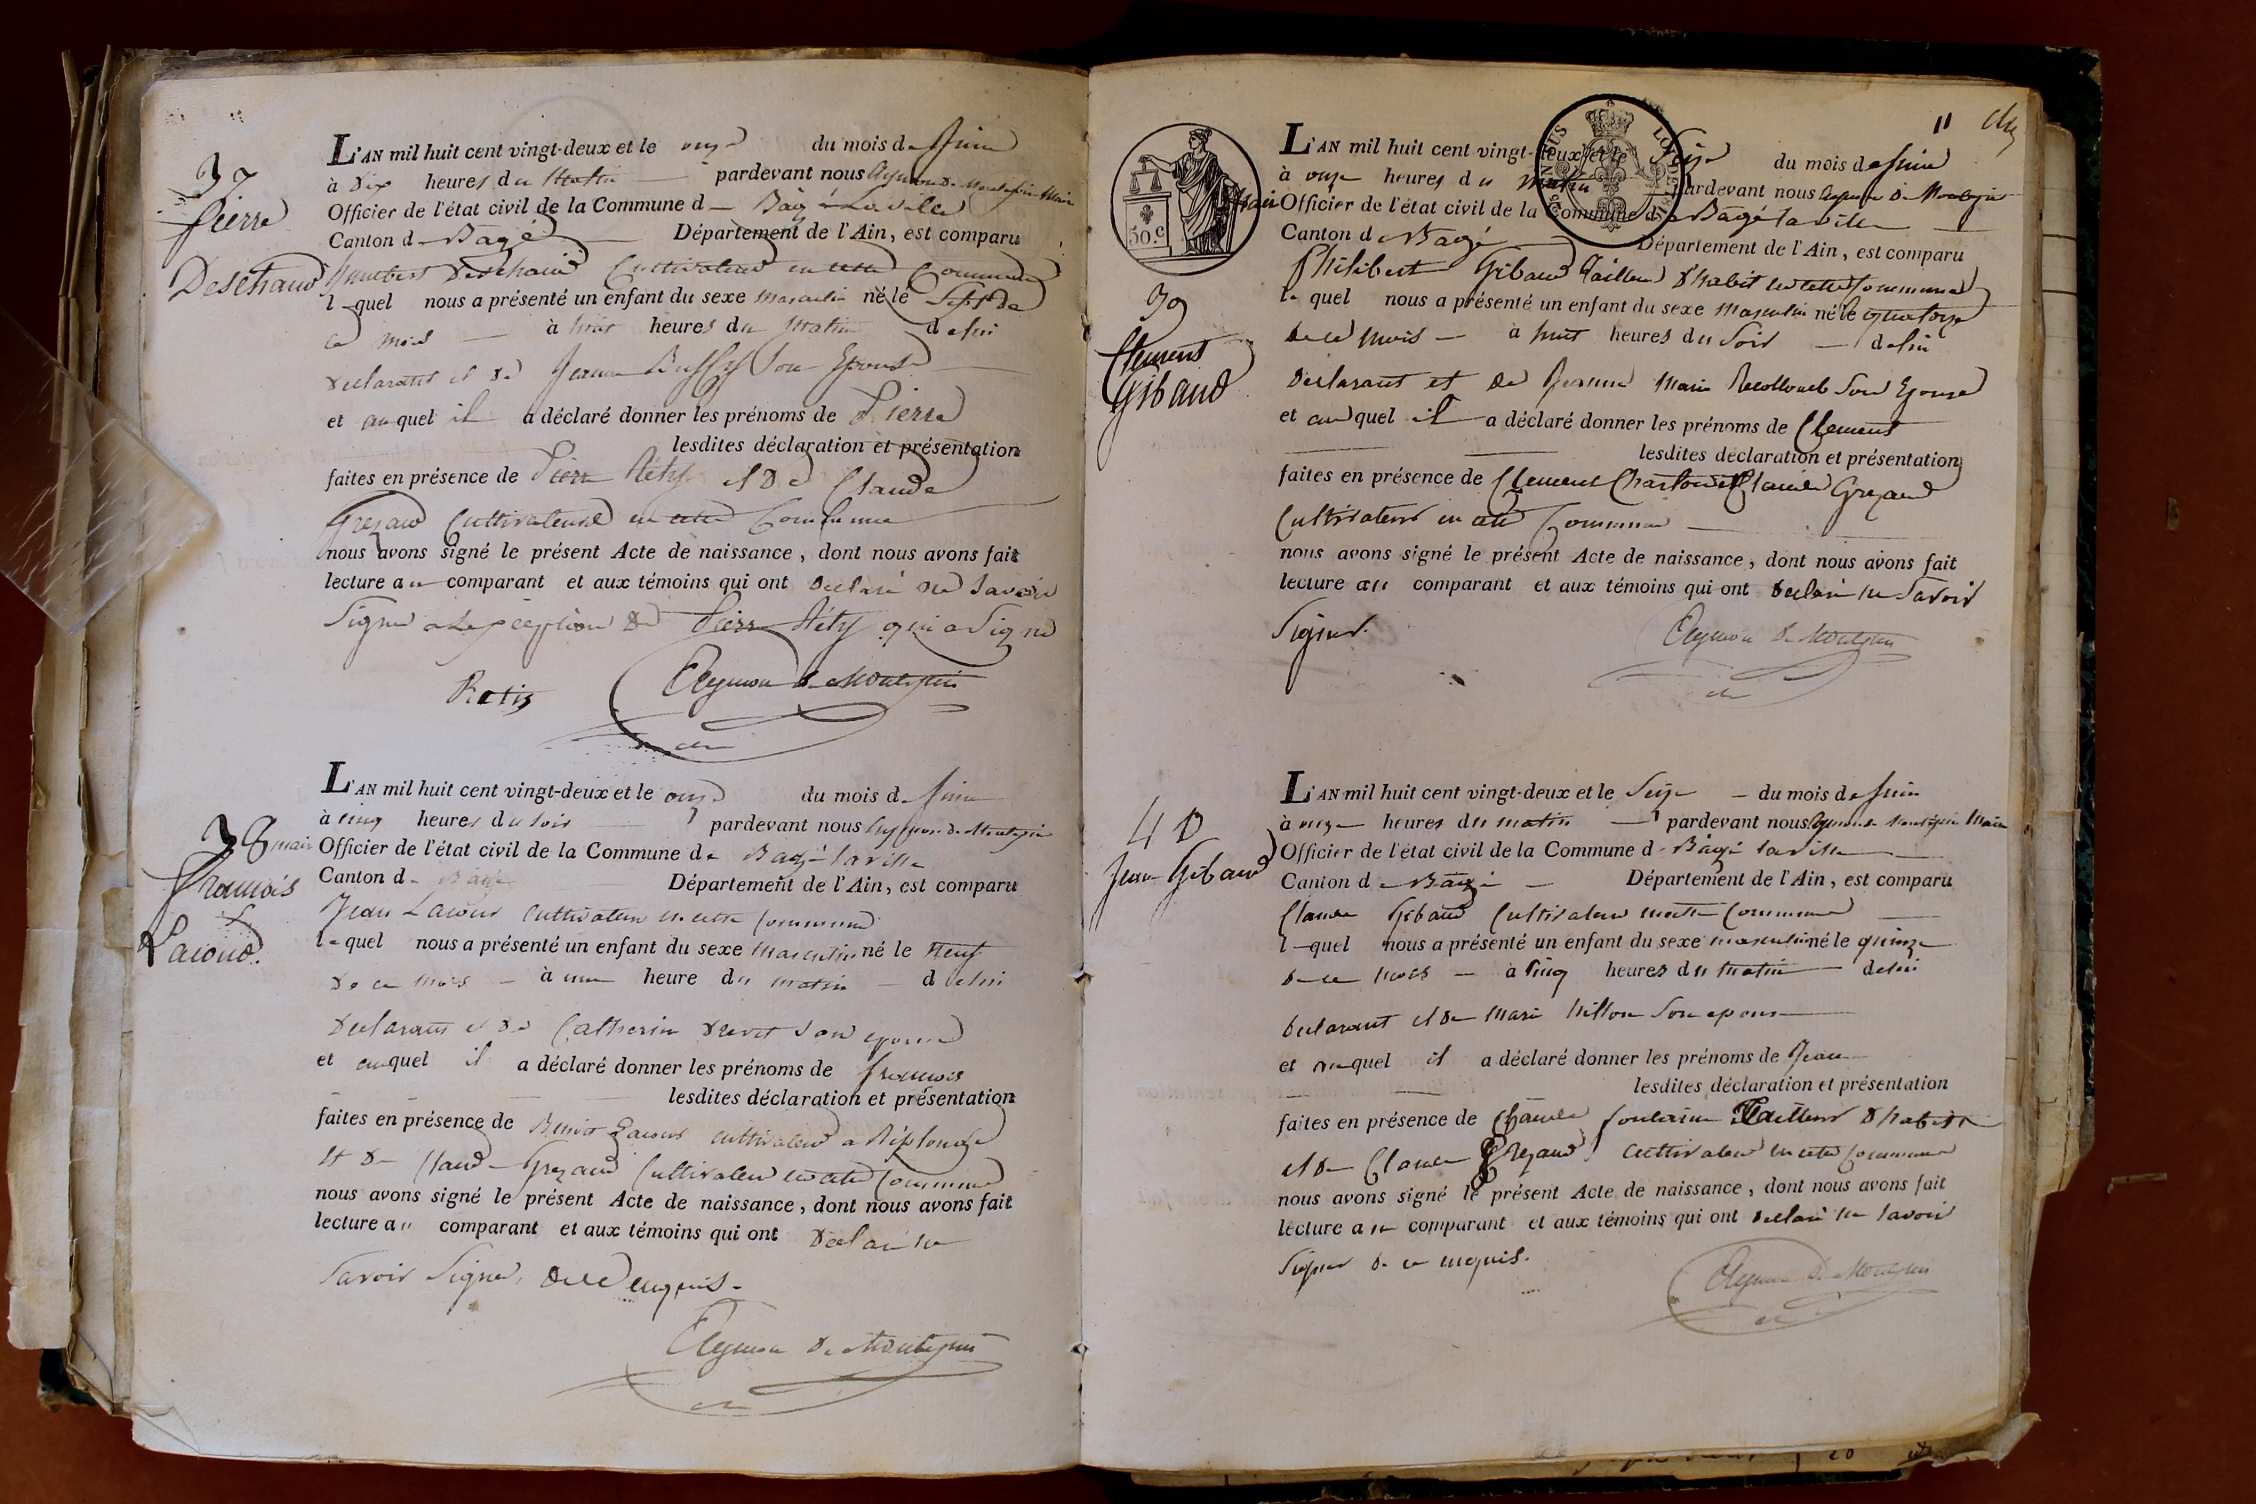 37
Pierre
Deschaud
L'AN mil huit cent vingt-deux et le onze du mois de Juin
à Dix heures du Matin pardevant nous Aymon de Montepin Maire
Officier de l'état civil de la Commune de Bagé la ville
Canton de Bagé Département de l'Ain, est comparu
Humbert Deschaud Cultivateur en cette Commune
lequel nous a présenté un enfant du sexe masculin né le Sept de
ce mois à trois heures du Matin de lui
declarant et de Jeanne Buffy Son Epouse
et auquel il a déclaré donner les prénoms de Pierre
lesdites déclaration et présentation
faites en présence de Pierre Réty et De Claude
Grezaud Cultivateurs en cette Commune
nous avons signé le présent Acte de naissance, dont nous avons fait
lecture au comparant et aux témoins qui ont declaré ne Savoir
Signer a Lexception De Pierre Réty qui a Signé
Retis Aymon de Montepin
38
François
Lacoud.
L'AN mil huit cent vingt-deux et le onze du mois de Juin
à cinq heures du soir pardevant nous Aymon de Montepin
maire Officier de l'état civil de la Commune de Bagé la ville
Canton de Bagé Département de l'Ain, est comparu
Jean Lacoud Cultivateur en cette Commune
lequel nous a présenté un enfant du sexe masculin né le Neuf
de ce mois à une heure du matin de lui
declarant et de Catherine Drevet son epouse
et auquel il a déclaré donner les prénoms de François
lesdites déclaration et présentation
faites en présence de Benoit Lacoud cultivateur a Réplonge
et de Claude Grezaud Cultivateur en cette Commune
nous avons signé le présent Acte de naissance, dont nous avons fait
lecture au comparant et aux témoins qui ont declaré ne
Savoir Signer, de ce enquis.
Aymon de Montepin
11
50.c
39
Clement
Gibaud
L'AN mil huit cent vingt-deux et le Seize du mois de Juin
à onze heures du matin pardevant nous Aymon de Montepin
Maire Officier de l'état civil de la Commune de Bagé la ville
Canton de Bagé Département de l'Ain, est comparu
Philibert Gibaud Tailleur d'habit en cette Commune
lequel nous a présenté un enfant du sexe masculin né le quatorze
de ce mois à huit heures du Soir de lui
declarant et de Jeanne Marie Son Epouse
et auquel il a déclaré donner les prénoms de Clement
lesdites déclaration et présentation
faites en présence de Clement Charlon et Claude Grezaud
Cultivateurs en cette Commune
nous avons signé le présent Acte de naissance, dont nous avons fait
lecture au comparant et aux témoins qui ont declaré ne Savoir
Signer.
Aymon de Montepin
40
Jean Gibaud
L'AN mil huit cent vingt-deux et le Seize du mois de Juin
à onze heures du matin pardevant nous Aymon de Montepin Maire
Officier de l'état civil de la Commune de Bagé la ville
Canton de Bagé Département de l'Ain, est comparu
Claude Gibaud Cultivateur en cette Commune
lequel nous a présenté un enfant du sexe masculin né le quinze
de ce mois à Cinq heures du Matin de lui
declarant et de Marie Millon Son epouse
et auquel il a déclaré donner les prénoms de Jean
lesdites déclaration et présentation
faites en présence de Claude fontaine Tailleur d'habits
et de Claude Grezaud cultivateur en cette Commune
nous avons signé le présent Acte de naissance, dont nous avons fait
lecture au comparant et aux témoins qui ont declaré ne savoir
Signer de ce enquis.
Aymon de Montepin